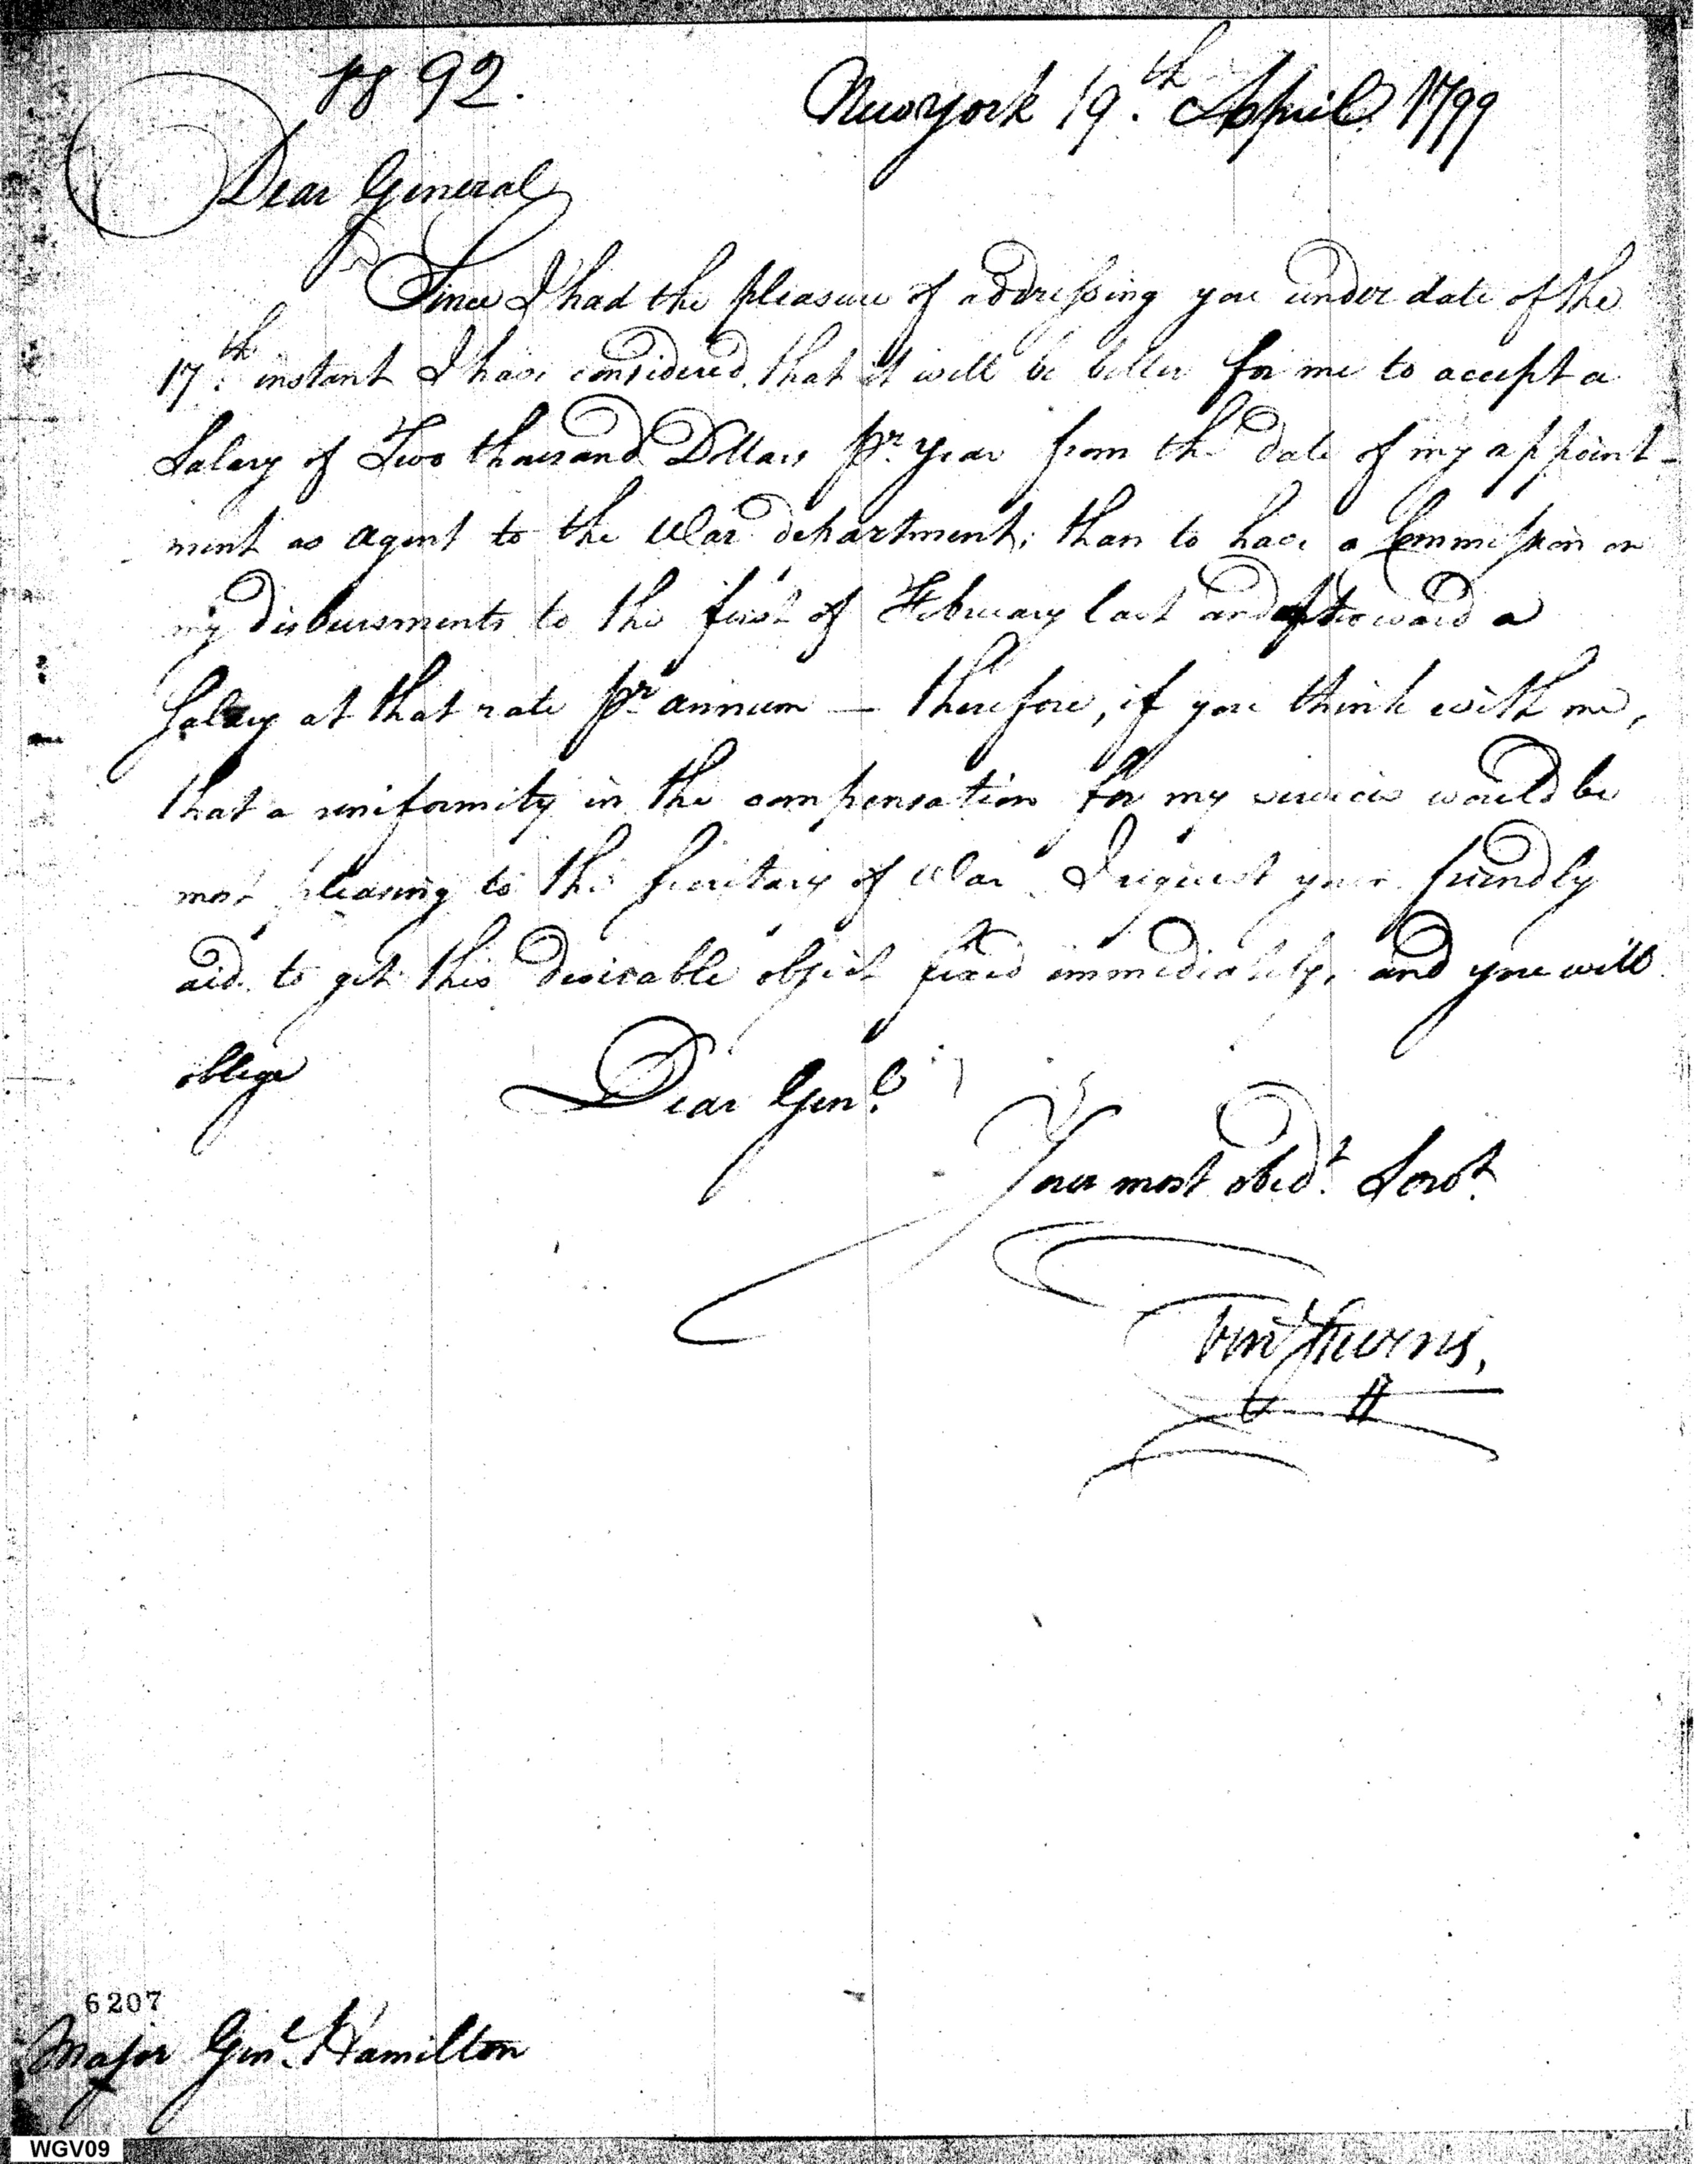 92.
New York 19.th April 1799
Dear General
Since I had the pleasure of addressing you under date of the
17.th instant I have considered, that it will be better for me to accept a
Salary of Two thousand Dollars pr. year from the date of my appoint-
ment as agent to the War department; than to have a Commission on
my disbursments to the first of February last and afterward a
Salary at that rate pr annum — therefore, if you think with me,
that a uniformity in the compensation for my services would be
most pleasing to the Secretary of War I request your friendly
aid to get this desirable object fixed immediately, and you will
oblige
Dear Genl.
Your most obedt. Servt.
Stevens,
6207
Major Genl. Hamilton
WGV09